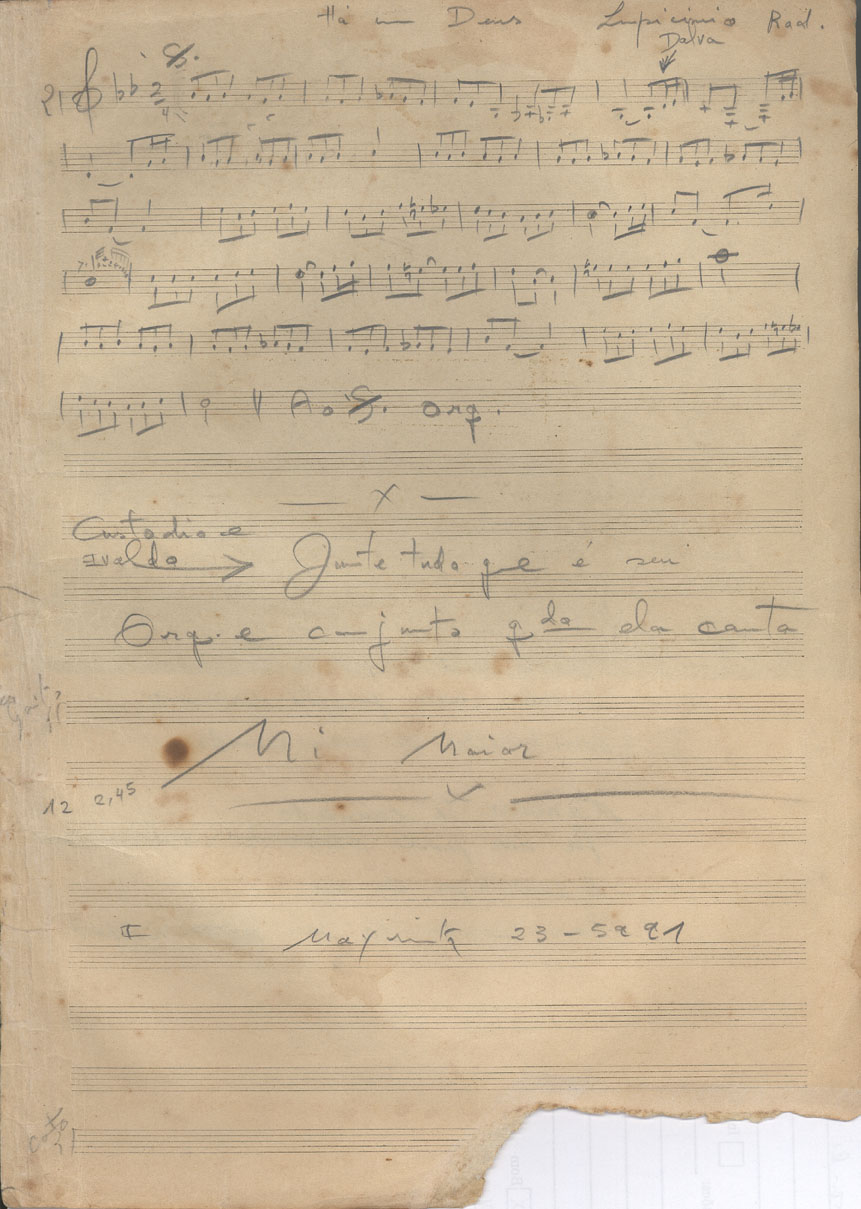 Há um Deus Lupicinio Rod.
Dalva
21 2
4
Ao 𝄋. Orq.
X
Custodio e
Ivaldo → Junte tudo que é seu
Orq. e conjunto qda ela canta
Mi Maior
12 2,45
I 23-5991